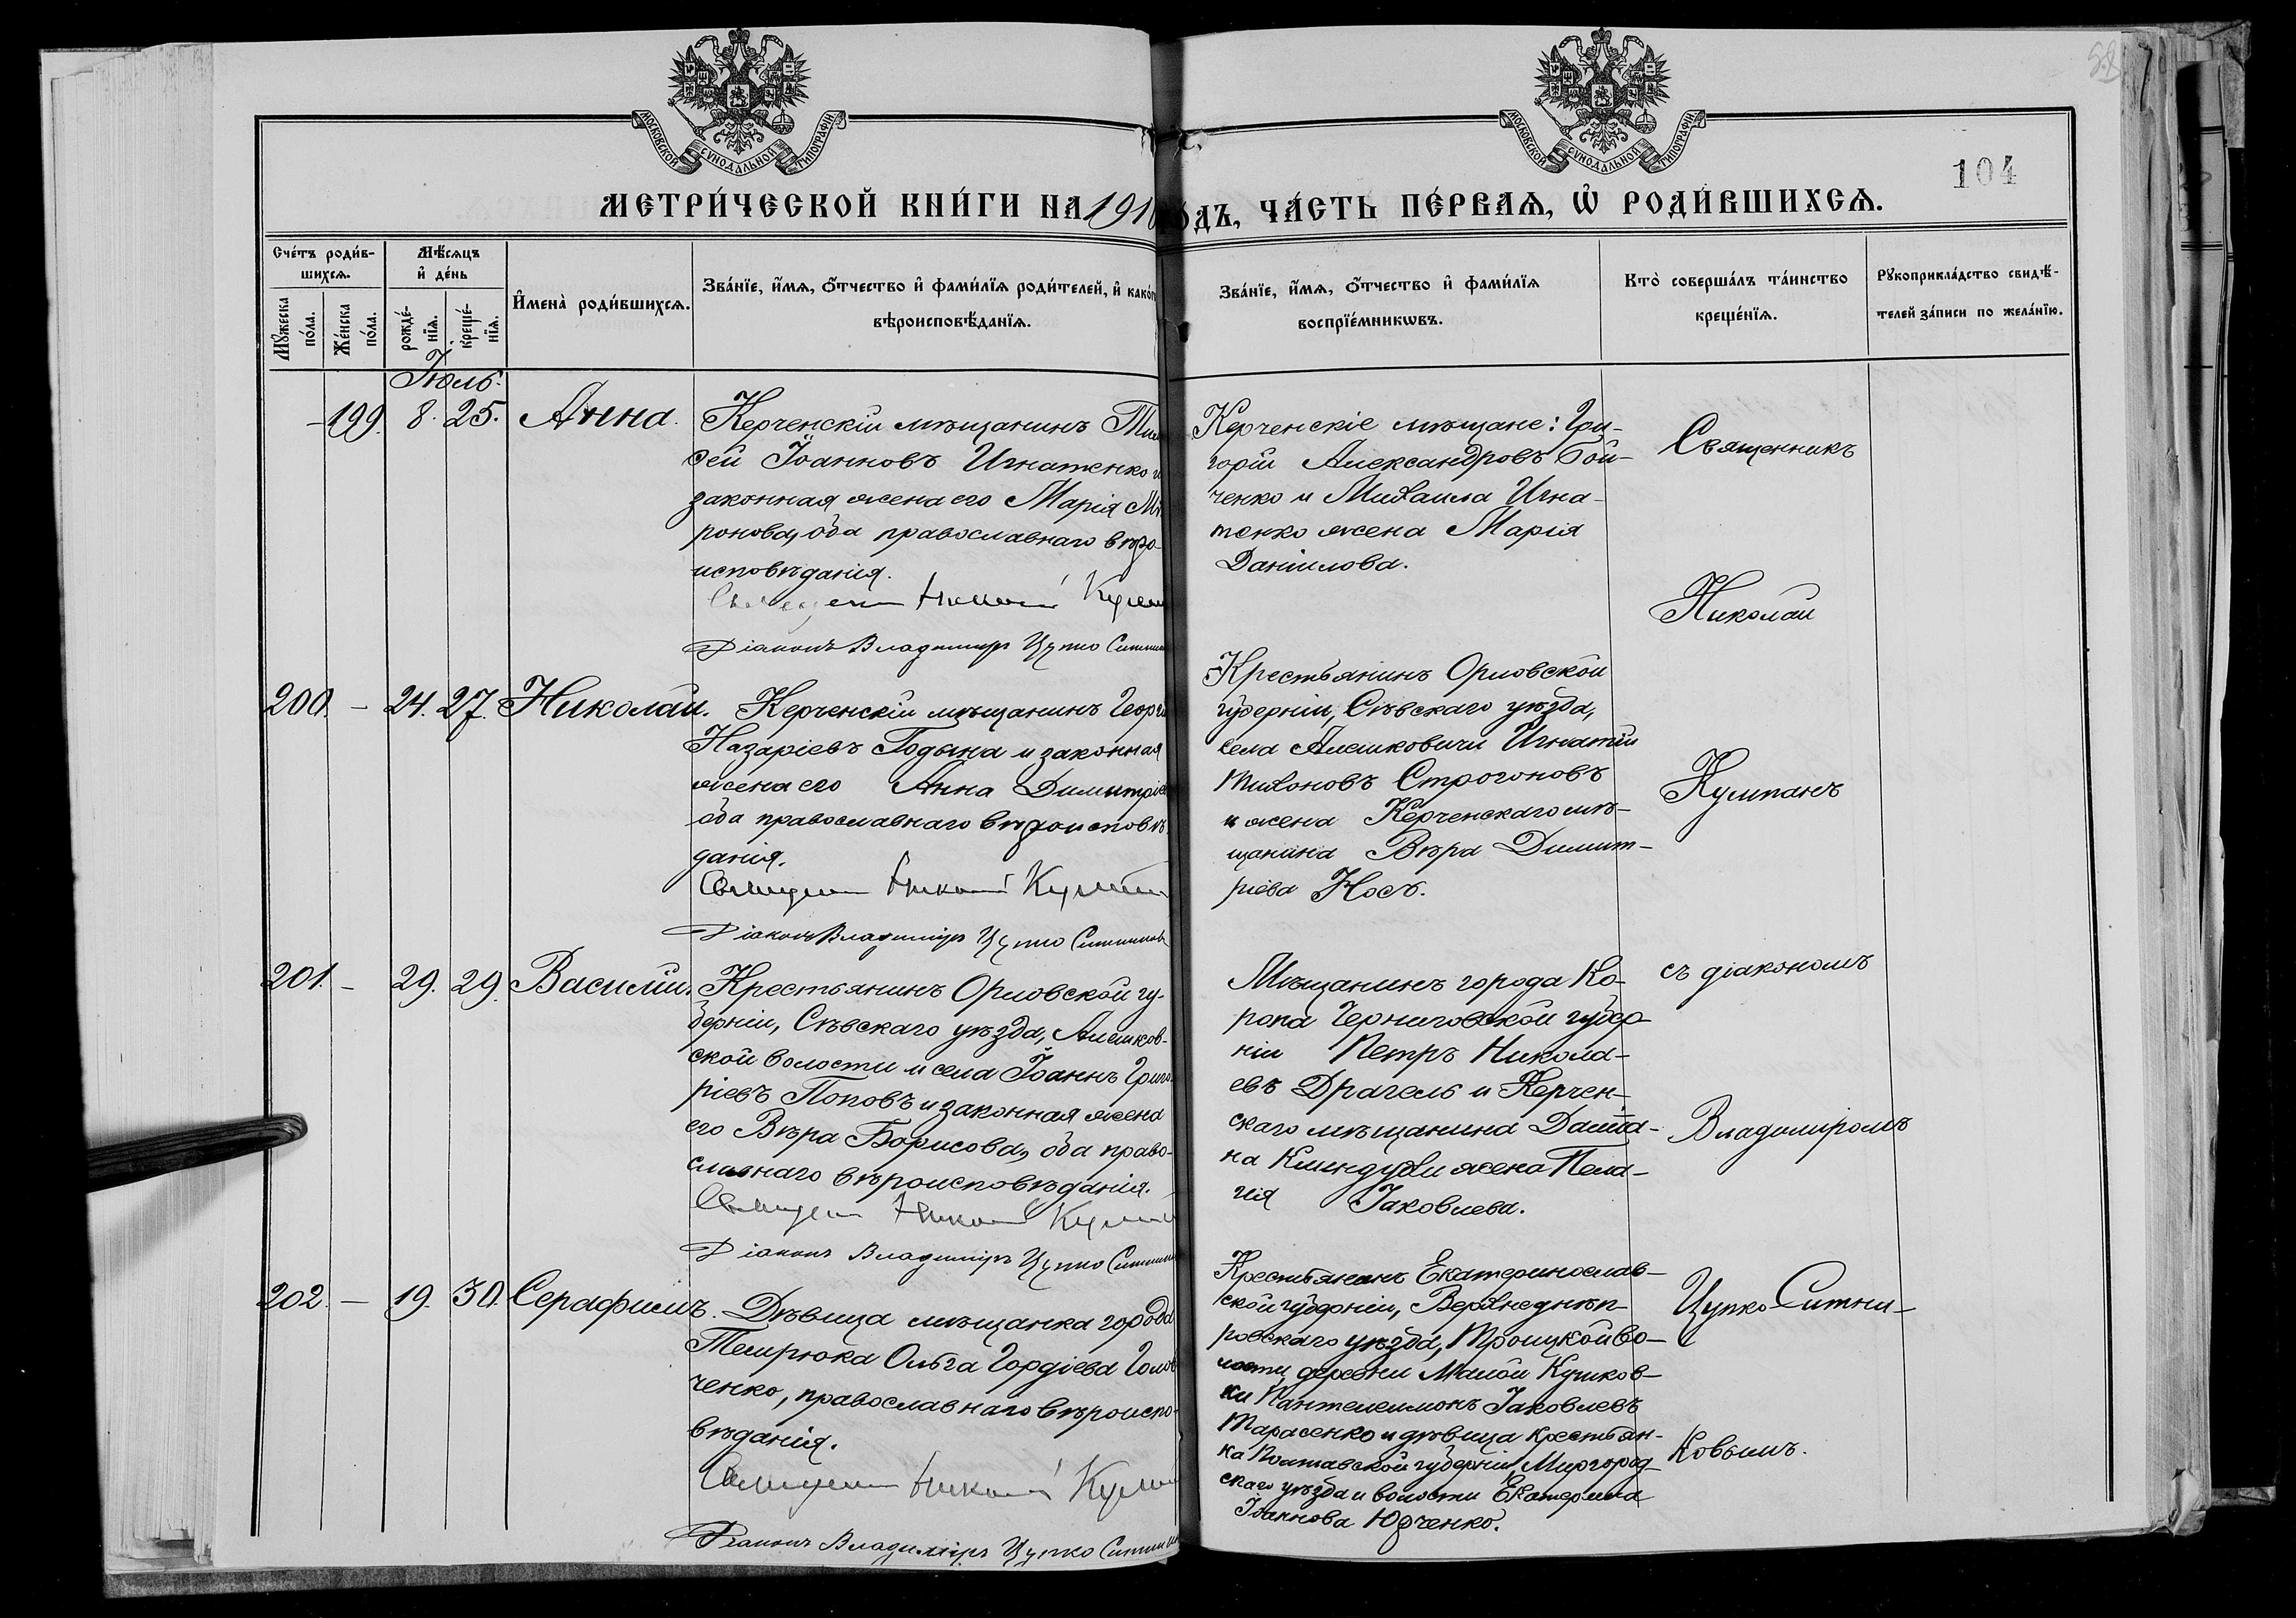 МОСКОВСКОЙ СѴНОДАЛЬНОЙ ТИПОГРАФІИ
МОСКОВСКОЙ СѴНОДАЛЬНОЙ ТИПОГРАФІИ
104
МЕТРИ́ЧЕСКОЙ КНИ́ГИ НА 191
ЧА́СТЬ ПЕ́РВАѦ, Ѽ РОДИ́ВШИХСѦ.
Сче́тъ роди́в-
шихсѧ.
Мѣ́сѧцъ
и҆ де́нь
Мꙋ́жеска по́ла.
Же́нска по́ла.
рожде́-
нїѧ.
креще́-
нїѧ.
И҆мена̀ роди́вшихсѧ.
Зва́нїе, и҆́мѧ, ѻ҆́тчество и҆ фами́лїѧ роди́телей, и҆ како́г
вѣроисповѣ́данїѧ.
Зва́нїе, и҆́мѧ, ѻ҆́тчество и҆ фами́лїѧ
воспрїе́мникѡвъ.
Кто̀ соверша́лъ та́инство
креще́нїѧ.
Рꙋкоприкла́дство свидѣ́-
телей за́писи по жела́нїю.
Іюль.
199. 8. 25. Анна.
Керченскій мѣщанинъ
ѳей Іоанновъ Игнатенко и
законная жена его Марія Ми
ронова, оба православнаго вѣро-
исповѣданія.
Николай
Діаконъ Владимиръ Цупко
Керченскіе мѣщане: Гри-
горій Александровъ Бой-
ченко и Михаила Игна-
тенко жена Марія
Даніилова.
Священникъ
Николай
200. – 24. 27. Николай.
Керченскій мѣщанинъ Георгій
Назаріевъ Годына и законная
жена его Анна Димитріева
оба православнаго вѣроисповѣ-
данія.
Николай
Діаконъ Владиміръ Цупко
Крестьянинъ Орловской
губерніи, Сѣвскаго уѣзда,
села Алешковичи Игнатій
Тихоновъ Строгоновъ
и жена Керченскаго мѣ-
щанина Вѣра Димит-
ріева Носъ.
Кумпанъ
201. – 29. 29. Василій.
Крестьянинъ Орловской гу-
берніи, Сѣвскаго уѣзда, Алешков-
ской волости и села Іоаннъ Григо
ріевъ Поповъ и законная жена
его Вѣра Борисова, оба право-
славнаго вѣроисповѣданія.
Николай
Діаконъ Владиміръ Цупко
Мѣщанинъ города Ко-
ропа Черниговской губер-
ніи Петръ Никола-
евъ Драгель и Керчен-
скаго мѣщанина
на жена Пела-
гія Іаковлева.
съ діакономъ
Владиміромъ
202. – 19. 30. Серафимъ.
Дѣвица мѣщанка города
Темрюка Ольга Гордіева Голов
ченко, православнаго вѣроиспо-
вѣданія.
Николай
Діаконъ Владиміръ Цупко
Крестьянинъ Екатеринослав-
ской губерніи, Верхнеднѣп-
ровскаго уѣзда, Троицкой во-
лости, деревни Малой Кушков-
ки Пантелеимонъ Іаковлевъ
Тарасенко и дѣвица крестьян-
ка Полтавской губерніи, Миргород-
скаго уѣзда и волости Екатерина
Іоаннова Юрченко.
Цупко-Ситни-
ковымъ.